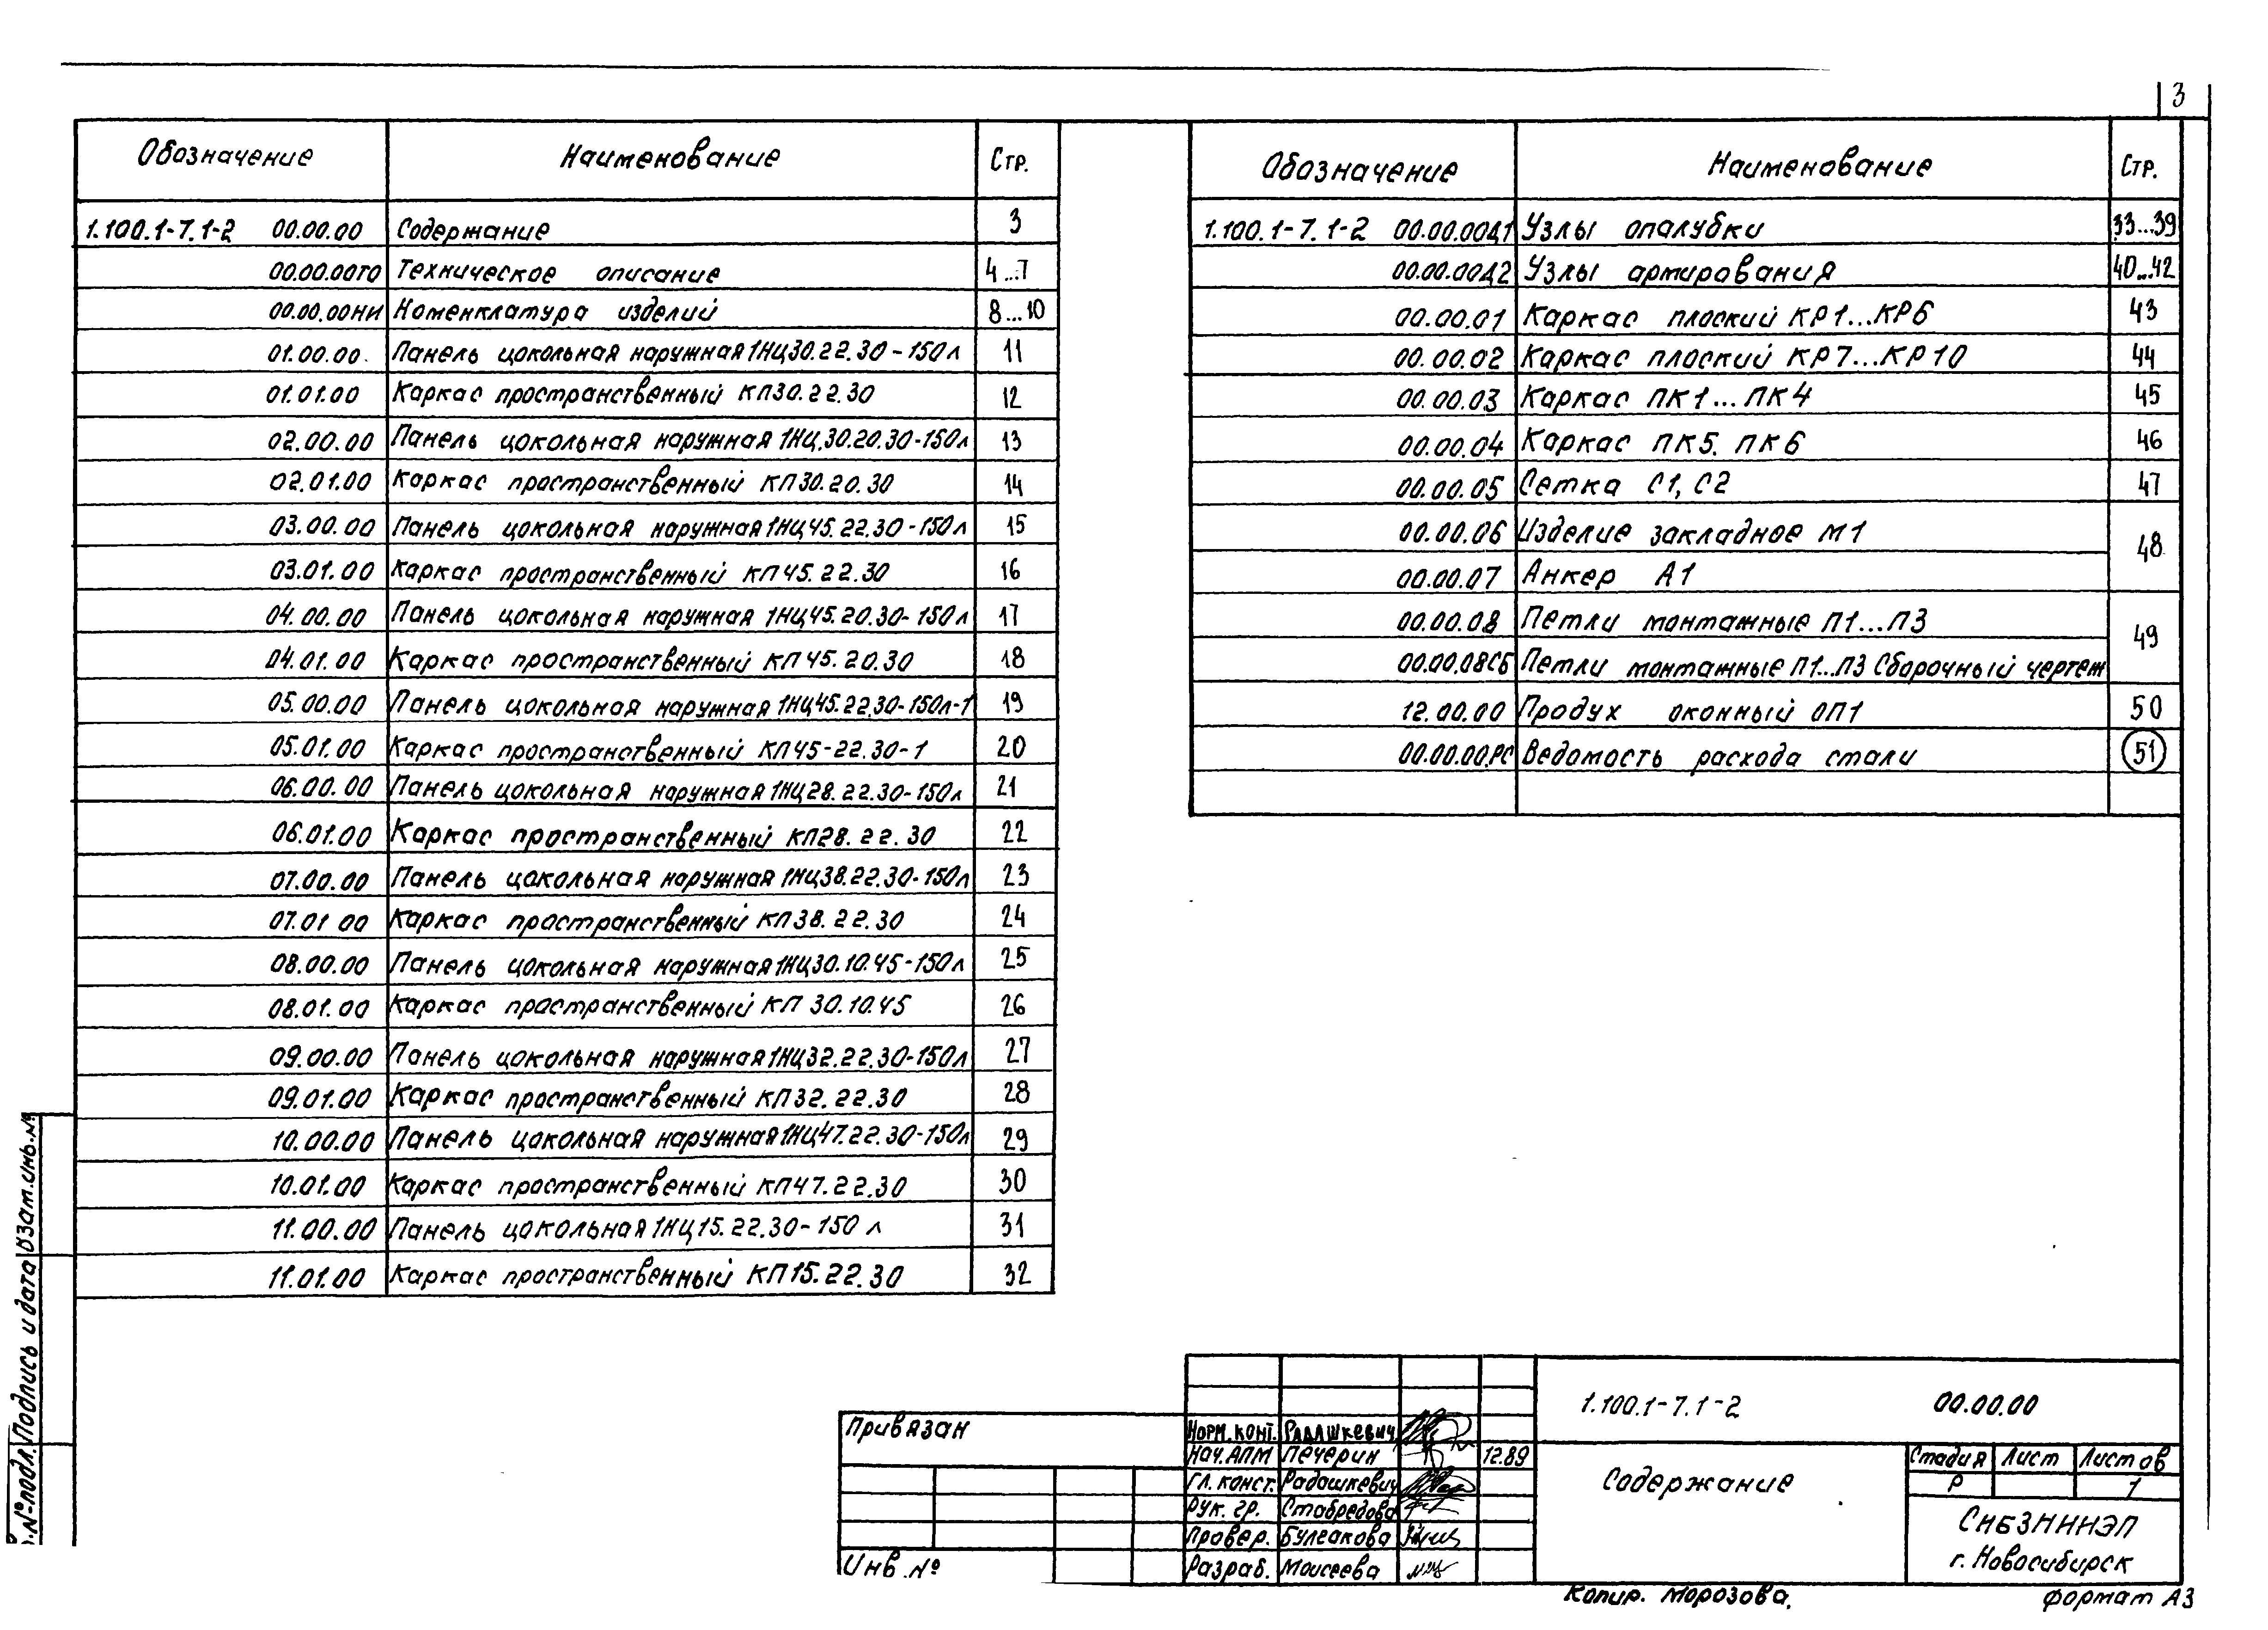 3
Обозначение Наименование Стр.
1.100.1-7.1-2 00.00.00 Содержание 3
00.00.00ТО Техническое описание 4...7
00.00.00НИ Номенклатура изделий 8...10
01.00.00 Панель цокольная наружная 1НЦ30.22.30-150л 11
01.01.00 Каркас пространственный КП30.22.30 12
02.00.00 Панель цокольная наружная 1НЦ.30.20.30-150л 13
02.01.00 Каркас пространственный КП30.20.30 14
03.00.00 Панель цокольная наружная 1НЦ45.22.30-150л 15
03.01.00 Каркас пространственный КП45.22.30 16
04.00.00 Панель цокольная наружная 1НЦ45.20.30-150л 17
04.01.00 Каркас пространственный КП45.20.30 18
05.00.00 Панель цокольная наружная 1НЦ45.22.30-150л-1 19
05.01.00 Каркас пространственный КП45-22.30-1 20
06.00.00 Панель цокольная наружная 1НЦ28.22.30-150л 21
06.01.00 Каркас пространственный КП28.22.30 22
07.00.00 Панель цокольная наружная 1НЦ38.22.30-150л 23
07.01 00 Каркас пространственный КП38.22.30 24
08.00.00 Панель цокольная наружная 1НЦ30.10.45-150л 25
08.01.00 Каркас пространственный КП 30.10.45 26
09.00.00 Панель цокольная наружная 1НЦ32.22.30-150л 27
09.01.00 Каркас пространственный КП32.22.30 28
10.00.00 Панель цокольная наружная 1НЦ47.22.30-150л 29
10.01.00 Каркас пространственный КП47.22.30 30
11.00.00 Панель цокольная 1НЦ15.22.30-150 л 31
11.01.00 Каркас пространственный КП15.22.30 32
Обозначение Наименование Стр.
1.100.1-7.1-2 00.00.00Д1 Узлы опалубки 33...39
00.00.00Д2 Узлы армирования 40...42
00.00.01 Каркас плоский КР1...КР6 43
00.00.02 Каркас плоский КР7...КР10 44
00.00.03 Каркас ПК1...ПК4 45
00.00.04 Каркас ПК5, ПК6 46
00.00.05 Сетка С1, С2 47
00.00.06 Изделие закладное М1 48
00.00.07 Анкер А1
00.00.08 Петли монтажные П1...П3 49
00.00.08СБ Петли монтажные П1...П3 Сборочный чертеж
12.00.00 Продух оконный ОП1 50
00.00.00.РС Ведомость расхода стали 51
Взам.инв.№
Подпись и дата
№подл.
Привязан
Инв.№
Норм.конт. Радашкевич
Нач.АПМ Печерин 12.89
Гл.конст. Радашкевич
Рук. гр. Стабредова
Провер. Булгакова
Разраб. Моисеева
1.100.1-7.1-2 00.00.00
Содержание
Стадия Лист Листов
Р 1
СибЗНИИЭП
г. Новосибирск
Копир. Морозова.
Формат А3